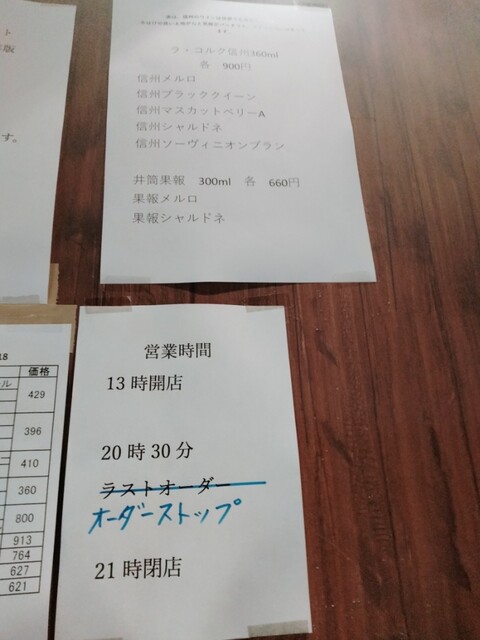 ト
版
す。
ラ・コルク信州360ml
各 900円
信州メルロ
信州ブラッククイーン
信州マスカットベリーA
信州シャルドネ
信州ソーヴィニオンブラン
井筒果報 300ml 各 660円
果報メルロ
果報シャルドネ
営業時間
13時開店
20時30分
ラストオーダー
オーダーストップ
21時閉店
18
ル 価格
429
396
410
360
800
913
764
627
621